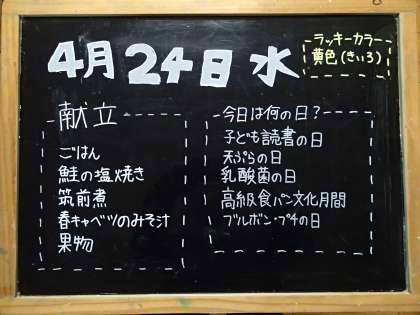 4月24日 水
ラッキーカラー
黄色(きいろ)
献立
ごはん
鮭の塩焼き
筑前煮
春キャベツのみそ汁
果物
今日は何の日?
子ども読書の日
天ぷらの日
乳酸菌の日
高級食パン文化月間
ブルボン・プチの日